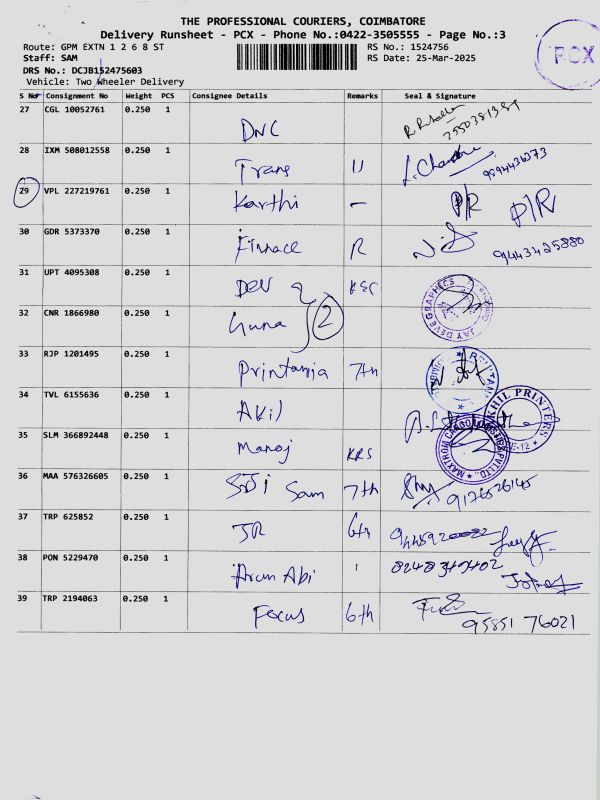 THE PROFESSIONAL COURIERS, COIMBATORE
Delivery Runsheet - PCX - Phone No.:0422-3505555 - Page No.:3
Route: GPM EXTN 1 2 6 8 ST RS No.: 1524756
Staff: SAM RS Date: 25-Mar-2025
DRS No.: DCJB152475603
Vehicle: Two Wheeler Delivery
PCX
S No Consignment No Weight PCS Consignee Details Remarks Seal & Signature
27 CGL 10052761 0.250 1 DNC
28 IXM 508012558 0.250 1 Trans 11 9994436373
29 VPL 227219761 0.250 1 Karthi - P/R P/R
30 GDR 5373370 0.250 1 Finnace R 9443425880
31 UPT 4095308 0.250 1 Dev
JAY DEVE GRAPHICS
32 CNR 1866980 0.250 1 Guna 2
33 RJP 1201495 0.250 1 Printania 7th
34 TVL 6155636 0.250 1 Akil
AKHIL PRINTERS
35 SLM 366892448 0.250 1 Manoj KRS
36 MAA 576326605 0.250 1 Sam 7th 9176526145
37 TRP 625852 0.250 1 JR 6th
38 PON 5229470 0.250 1 Arun Abi
39 TRP 2194063 0.250 1 Focus 6th 95851 76021